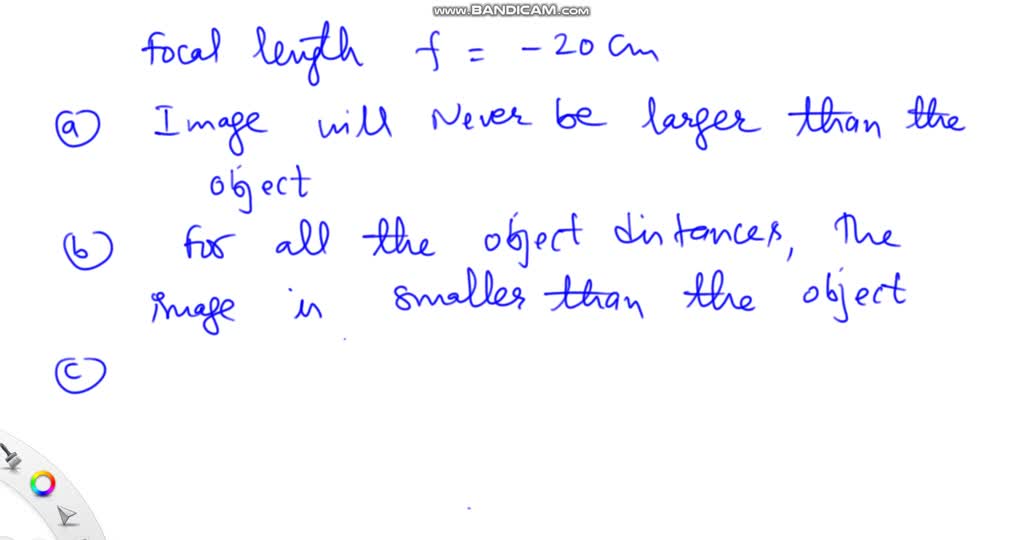 www.BANDICAM.com
focal length f = -20 cm
(a) Image will Never be larger than the
object
(b) for all the object distances, The
image is smaller than the object
(c)